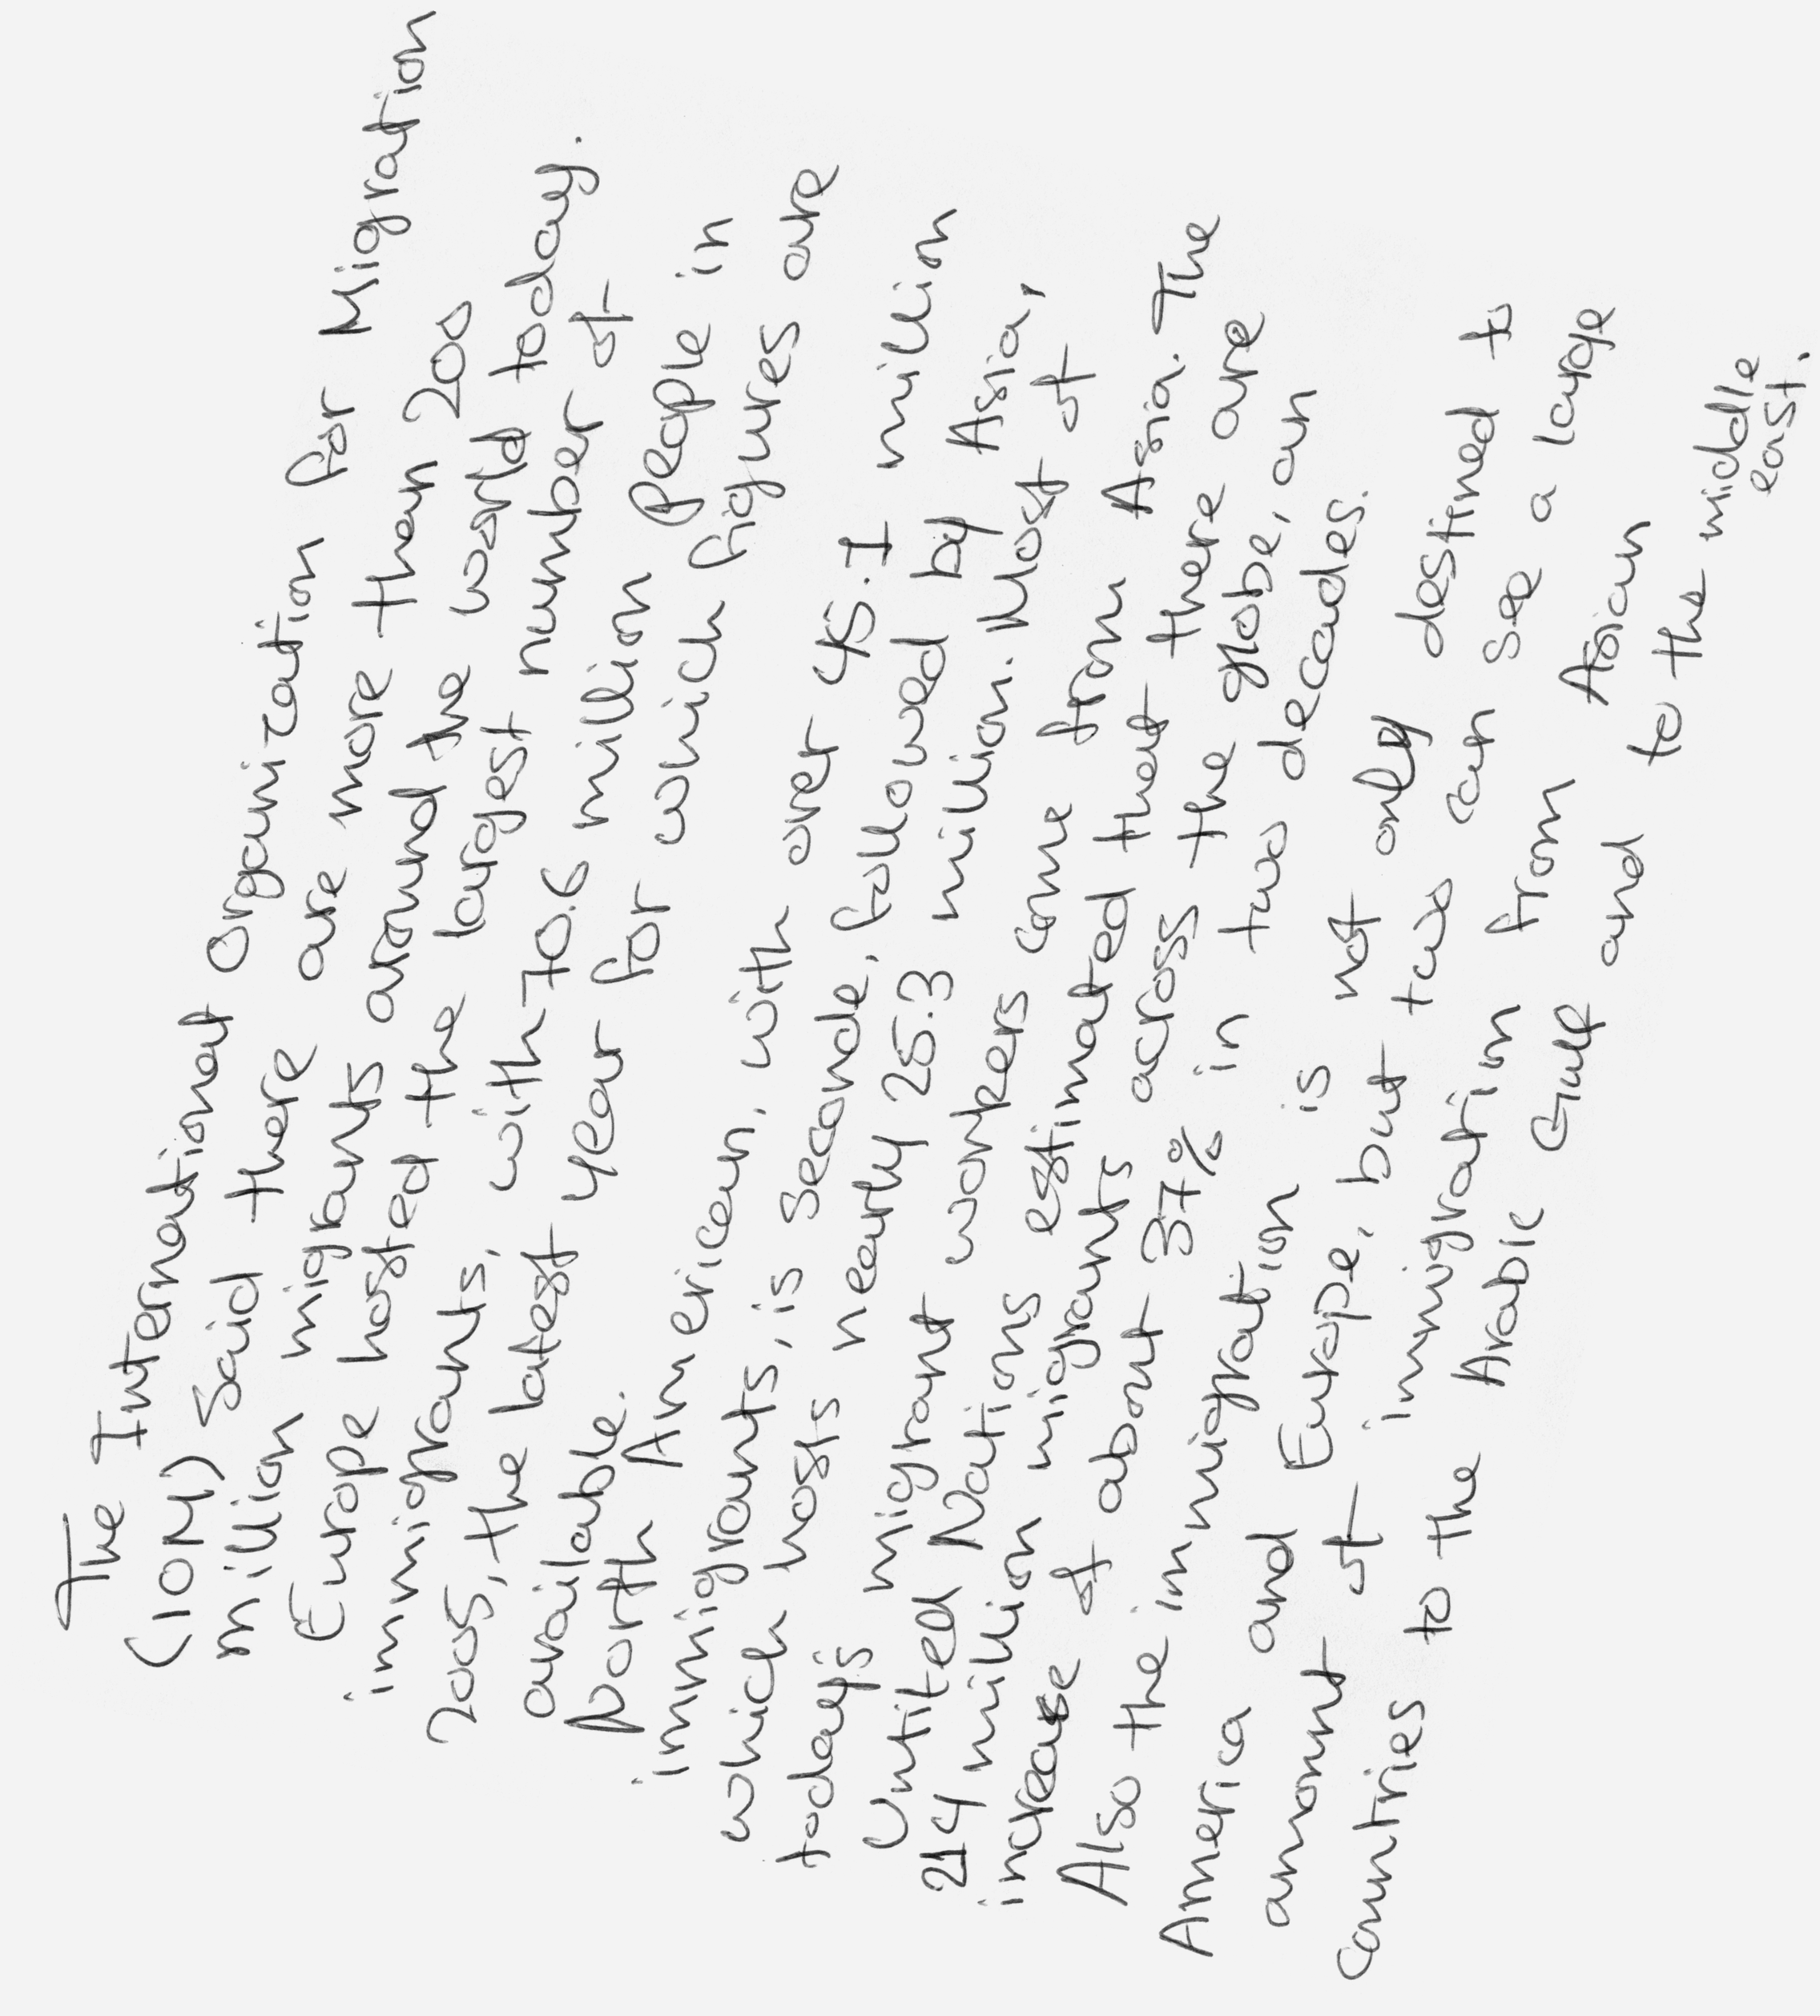 The International Organization for Migration
(IOM) Said there are more than 200
million migrants around the world today.
Europe hosted the largest number of
immigrants, with 70.6 million people in
2005, the latest year for which figures are
available.
North American, with over 45.1 million
immigrants, is seconde, followed by Asia,
which hosts nearly 25.3 million. Most of
today's migrant workers come from Asia. The
Untited Nations estimated that there are
214 million migrants across the globe, an
increase of about 37% in two decades.
Also the immigration is not only destined to
America and Europe, but two can see a large
amount of immigration from Asian
countries to the Arabic Gulf and to the middle
east.